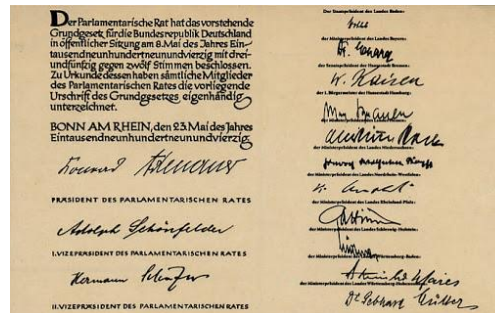 Der Parlamentarische Rat hat das vorstehende
Grundgesetz für die Bundesrepublik Deutschland
in öffentlicher Sitzung am 8. Mai des Jahres Ein-
tausendneunhundertneunundvierzig mit drei-
undfünfzig gegen zwölf Stimmen beschlossen.
Zu Urkunde dessen haben sämtliche Mitglieder
des Parlamentarischen Rates die vorliegende
Urschrift des Grundgesetzes eigenhändig
unterzeichnet.
BONN AM RHEIN, den 23. Mai des Jahres
Eintausendneunhundertneunundvierzig:
Konrad Adenauer
PRÄSIDENT DES PARLAMENTARISCHEN RATES
Adolph Schönfelder
I. VIZEPRÄSIDENT DES PARLAMENTARISCHEN RATES
Hermann Schäfer
II. VIZEPRÄSIDENT DES PARLAMENTARISCHEN RATES
Der Staatspräsident des Landes Baden:
der Ministerpräsident des Landes Bayern:
Dr. Ehard
der Senatspräsident der Hansestadt Bremen:
W. Kaisen
der I. Bürgermeister der Hansestadt Hamburg:
Max Brauer
der Ministerpräsident des Landes Hessen:
der Ministerpräsident des Landes Niedersachsen:
der Ministerpräsident des Landes Nordrhein-Westfalen:
K. Arnold
der Ministerpräsident des Landes Rheinland-Pfalz:
Altmeier
der Ministerpräsident des Landes Schleswig-Holstein:
der Ministerpräsident des Landes Württemberg-Baden:
Reinhold Maier
der Staatspräsident des Landes Württemberg-Hohenzollern:
Dr. Gebhard Müller